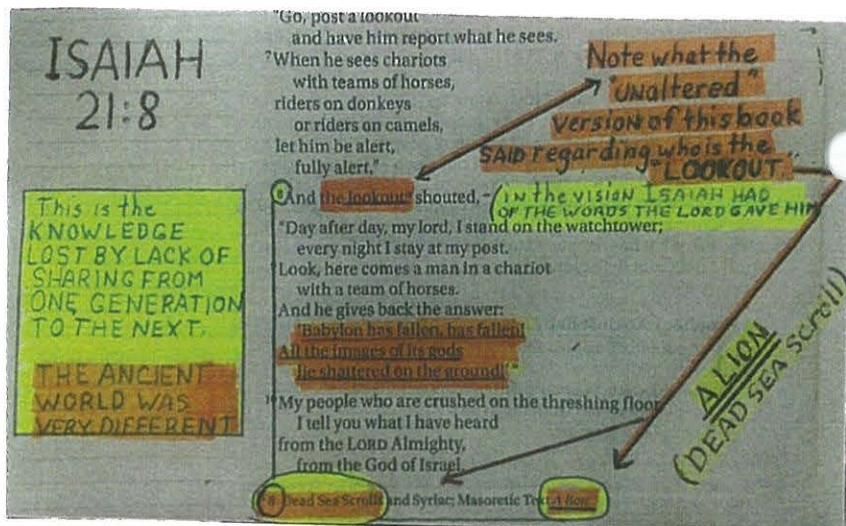 ISAIAH
21:8
This is the
KNOWLEDGE
LOST BY LACK OF
SHARING FROM
ONE GENERATION
TO THE NEXT.
THE ANCIENT
WORLD WAS
VERY DIFFERENT
"Go, post a lookout
and have him report what he sees.
7 When he sees chariots
with teams of horses,
riders on donkeys
or riders on camels,
let him be alert,
fully alert."
8 And the lookout shouted,
"Day after day, my lord, I stand on the watchtower;
every night I stay at my post.
Look, here comes a man in a chariot
with a team of horses.
And he gives back the answer:
'Babylon has fallen, has fallen!
All the images of its gods
lie shattered on the ground!'"
10 My people who are crushed on the threshing floor,
I tell you what I have heard
from the LORD Almighty,
from the God of Israel.
8 Dead Sea Scrolls and Syriac; Masoretic Text A lion
Note what the
"UNaltered"
version of this book
SAID regarding who is the
"LOOKOUT."
(IN the vision ISAIAH HAD
OF THE WORDS THE LORD GAVE HIM
A LION
(DEAD SEA Scroll)